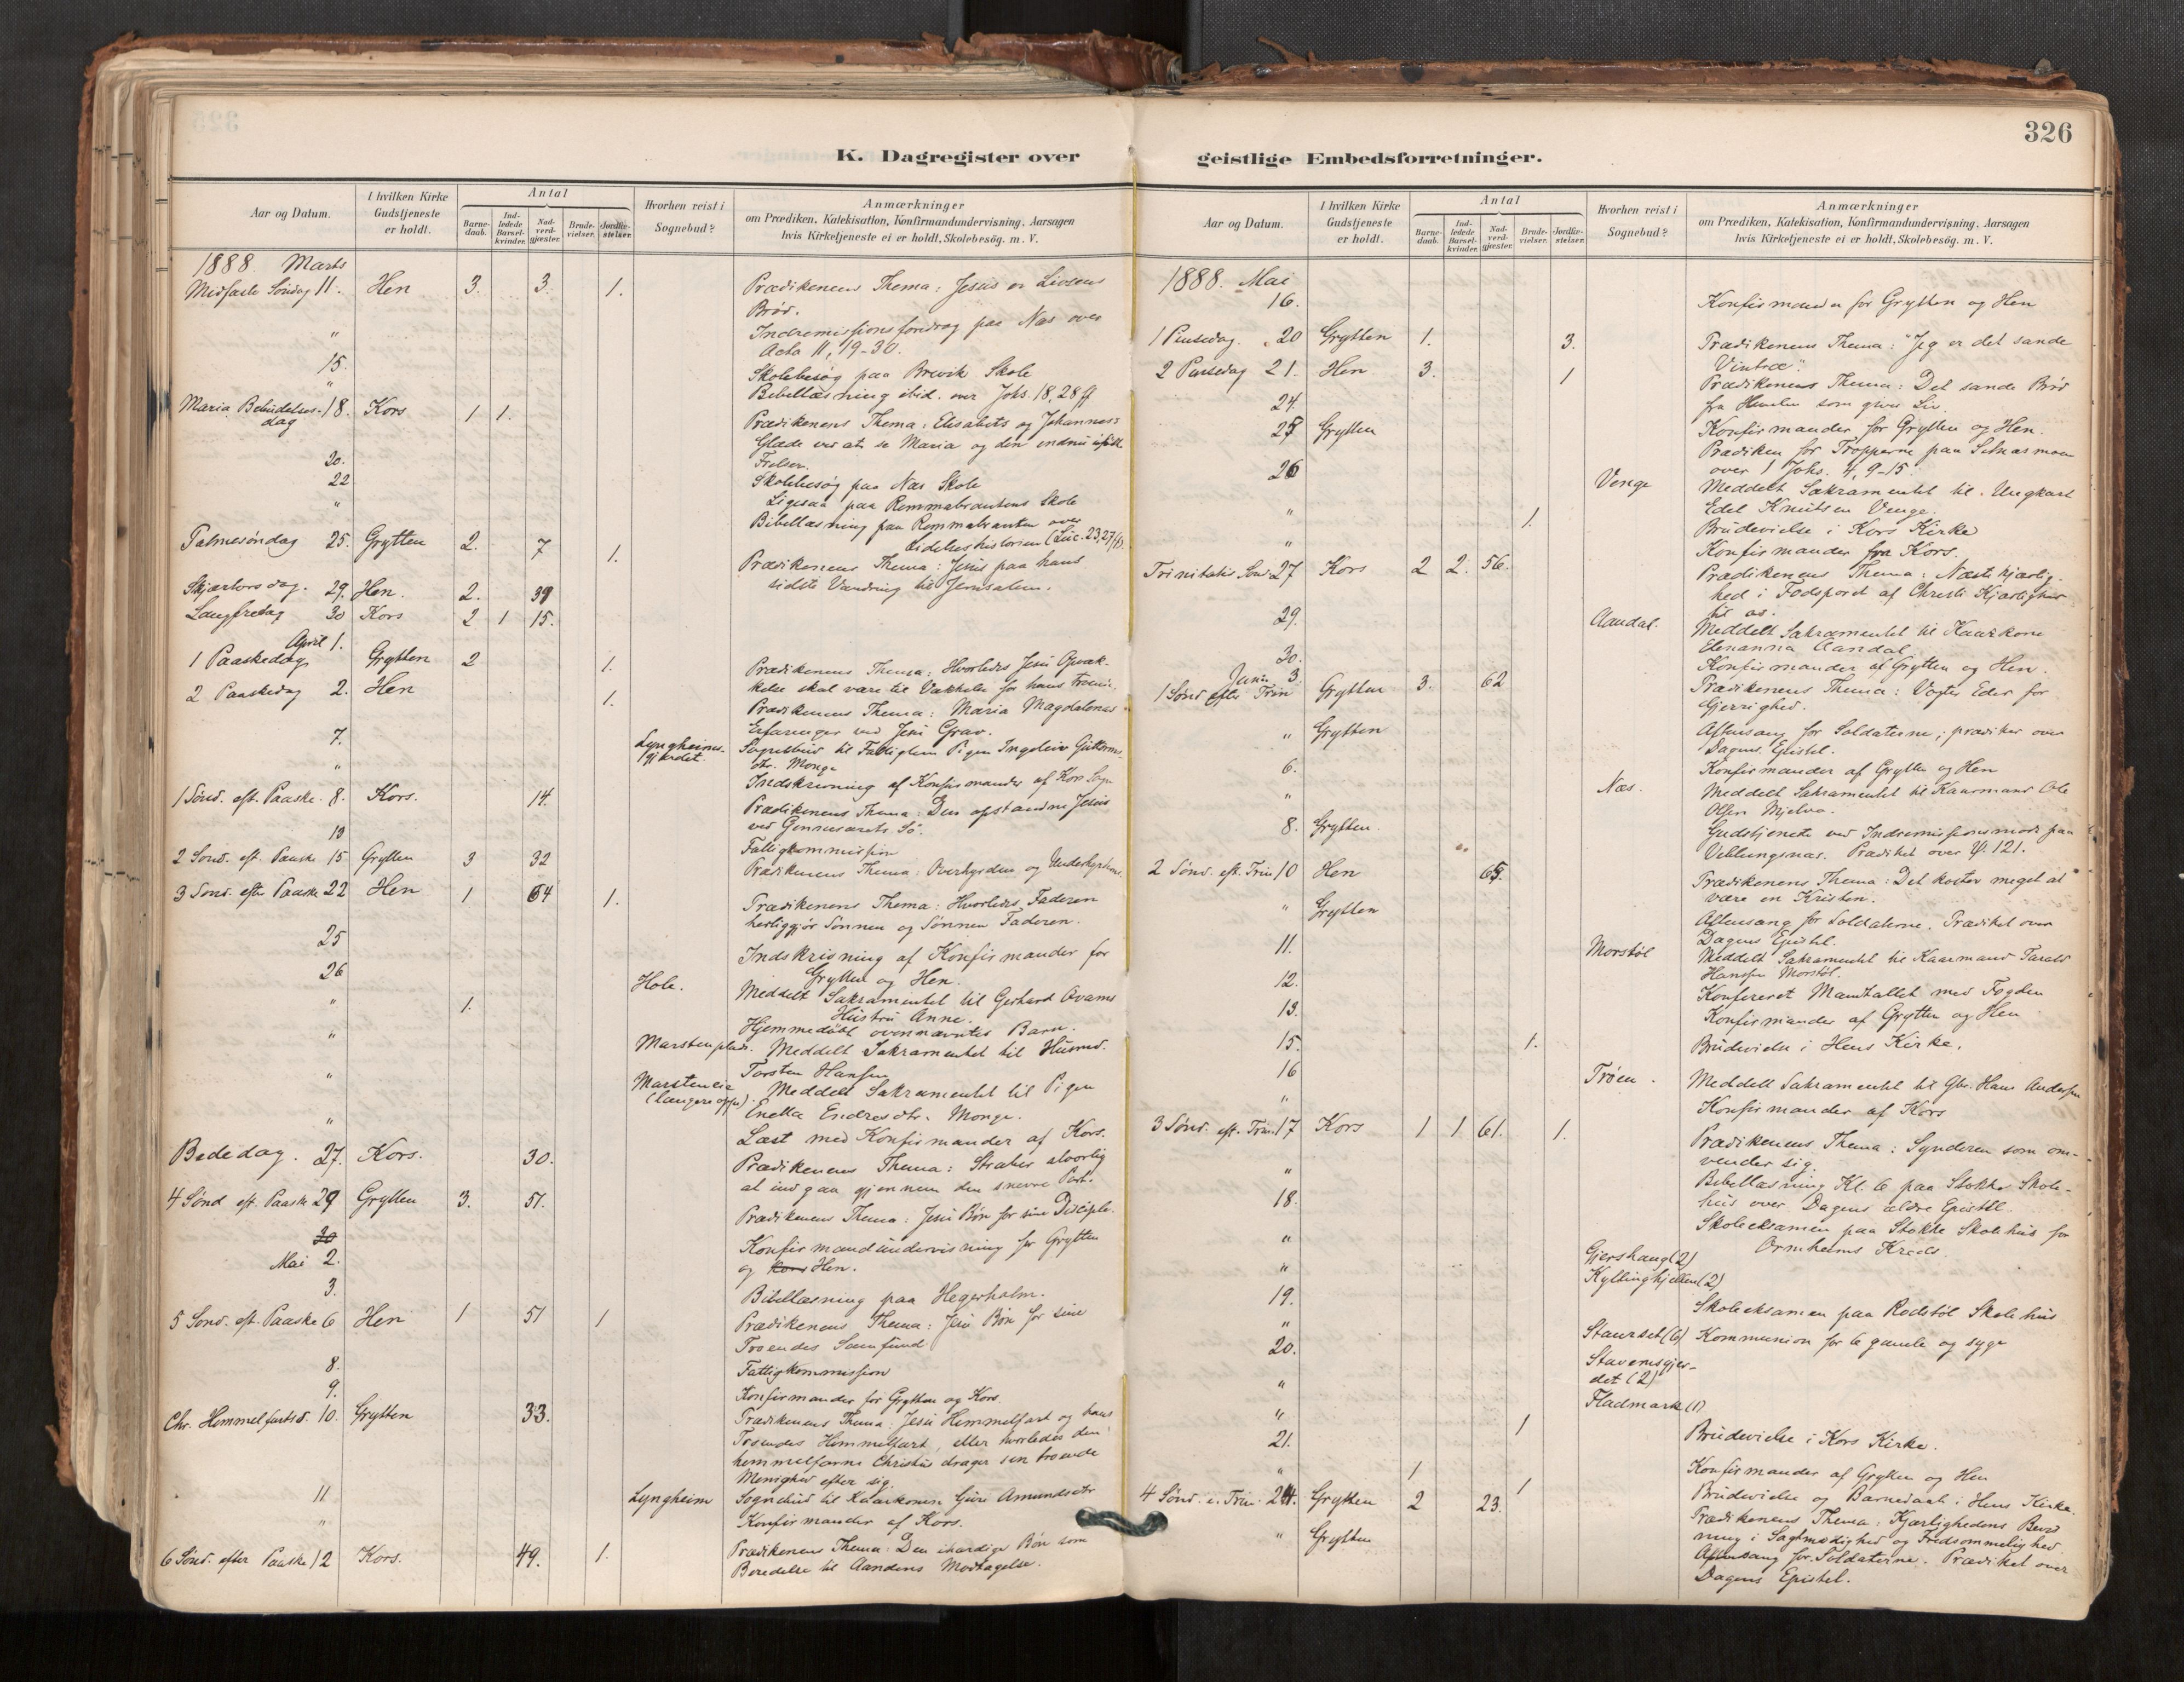 326
K. Dagregister over geistlige Embedsforretninger.
Aar og Datum. I hvilken Kirke Gudstjeneste er holdt. Antal Barnedaab. Indledede Barselkvinder. Nadverdgjester. Brudevielser. Jordfæstelser. Hvorhen reist i Sognebud? Anmærkninger om Prædiken, Katekisation, Konfirmandundervisning, Aarsagen hvis Kirketjeneste ei er holdt, Skolebesög. m. V.
1888 Marts
Midfaste Søndag 11. Hen 3. 3. 1. Prædikenens Thema: Jesus er Livsens
Brød.
" Indremissionsforedrag paa Næs over
Acta 11, 19-30.
15. Skolebesøg paa Brevik Skole
" Bibellæsning ibid. over Johs. 18, 28 ff
Maria Bebudelses- 18. Kors 1 1. Prædikenens Thema: Elisabets og Johannes's
dag Glæde ved at se Maria og den endnu ufødte
Frelser.
20. Skolebesøg paa Næs Skole
22 Ligesaa paa Remmabrautens Skole
" Bibellæsning paa Remmabrauten over
Lidelseshistorien (Luc. 23,27 ff).
Palmesöndag 25. Grytten 2. 7 1. Prædikenens Thema: Jesus paa hans
sidste Vandring til Jerusalem.
Skjærtorsdag. 29. Hen. 2. 39
Langfredag 30 Kors 2 1 15.
April 1.
1 Paaskedag Grytten 2 1. Prædikenens Thema: Hvorledes Jesu Opvæk-
kelse skal være til Vækkelse for hans troende.
2 Paaskedag 2. Hen 1. Prædikenens Thema: Maria Magdalenas
Erfaringer ved Jesu Grav.
7. Lyngheims- Sognebud til Fattiglem Pigen Ingeleiv Guttorms-
gjærdet. dtr. Monge
" Indskrivning af Konfirmander af Kors Sogn
1 Sönd. eft. Paaske. 8. Kors. 14. Prædikenens Thema: Den opstandne Jesus
ved Genesarets Sø.
13 Fattigkommission
2 Sönd. eft. Paaske 15 Grytten 3 32 Prædikenens Thema: Overhyrden og Underhyrderne.
3 Sönd. efter Paaske 22 Hen 1 64 1. Prædikenens Thema: Hvorledes Faderen
herliggjør Sønnen og Sønnen Faderen.
25 Indskrivning af Konfirmander for
Grytten og Hen.
26 Hole. Meddelt Sakramentet til Gerhard Avams
Hustru Anne.
" 1. Hjemmedøbt ovennævntes Barn.
" Marstenplads. Meddelt Sakramentet til Husmd.
Torsten Hansen
" Marsteneie (længere oppe). Meddelt Sakramentet til Pigen
Enetta Endresdtr. Monge.
" Læst med Konfirmander af Kors.
Bededag. 27. Kors. 30. Prædikenens Thema: Stræber alvorlig
at indgaa gjennem den snevre Port.
4 Sönd eft. Paaske 29 Grytten 3. 51. Prædikenens Thema: Jesu Bön for sine Disciple.
30
Mai 2. Konfirmandundervisning for Grytten
og Kors Hen.
3. Bibellæsning paa Hegerholm.
5 Sönd. eft. Paaske 6 Hen 1 51 1 Prædikenens Thema: Jesu Bön for sine
Troendes Samfund
8. Fattigkommission
9. Konfirmander for Grytten og Kors.
Chr. Himmelfartsd. 10. Grytten 33. Prædikenens Thema: Jesu Himmelfart og hans
Troendes Himmelfart, eller hvorledes den
himmelfarne Christus drager sin troende
Menighed efter sig.
11 Lyngheim Sognebud til Kaarkonen Guri Amundsdtr
" Konfirmander af Kors.
6 Sönd. efter Paaske 12 Kors. 49. 1. Prædikenens Thema: Den ihærdige Bön som
Beredelse til Aandens Modtagelse.
Aar og Datum. I hvilken Kirke Gudstjeneste er holdt. Antal Barnedaab. Indledede Barselkvinder. Nadverdgjester. Brudevielser. Jordfæstelser. Hvorhen reist i Sognebud? Anmærkninger om Prædiken, Katekisation, Konfirmandundervisning, Aarsagen hvis Kirketjeneste ei er holdt, Skolebesög. m. V.
1888. Mai
16. Konfirmander for Grytten og Hen
1 Pinsedag. 20 Grytten 1. 3. Prædikenens Thema: "Jeg er det sande
Vintræ".
2 Pinsedag 21. Hen 3. 1 Prædikenens Thema: Det sande Brød
fra Himlen som giver Liv.
24. Konfirmander for Grytten og Hen.
25 Grytten Prædiken for Tropperne paa Setnæsmoen
over 1 Johs. 4, 9-15.
26 Venge Meddelt Sakramentet til Ungkart
Edel Knutsen Venge.
" 1. Brudevielse i Kors Kirke
" Konfirmander fra Kors.
Trinitatis Sönd. 27 Kors 2 2. 56. Prædikenens Thema: Næstekjærlig-
hed i Fodsporet af Christi Kjærlighed
til os.
29. Aandal. Meddelt Sakramentet til Kaarkone
Elenanna Aandal
30. Konfirmander af Grytten og Hen.
Juni 3.
1 Sönd efter Trin Grytten 3. 62 Prædikenens Thema: Vogter Eder for
Gjerrighed.
" Grytten Aftensang for Soldaterne; prædiker over
Dagens Epistel.
6. Konfirmander af Grytten og Hen
" Næs. Meddelt Sakramentet til Kaarmand Ole
Olsen Mjelva.
8. Grytten. Gudstjeneste ved Indremissionsmøde paa
Veblungsnæs. Prædiket over Ψ. 121.
2 Sönd. eft. Trin 10 Hen 65. Prædikenens Thema: Det koster meget at
være en Kristen.
" Grytten Aftensang for Soldaterne. Prædiket over
Dagens Epistel.
11. Morstøl Meddelt Sakramentet til Kaarmand Tarald
Hansen Morstøl.
12. Konfereret Mandtallet med Fogden
13. Konfirmander af Grytten og Hen
15. 1. Brudevielse i Hens Kirke.
16 Trøen. Meddelt Sakramentet til Gbr. Hans Andersen
" Konfirmander af Kors
3 Sönd. eft. Trin. 17 Kors 1 1 61. 1. Prædikenens Thema: Synderen som om-
vender sig.
" Bibellæsning Kl. 6 paa Stokke Skole-
hus over Dagens ældre Epistel.
18. Skoleeksamen paa Stokke Skolehus for
Ormheims Kreds.
" Gjershaug (2)
" Kyllinghjellen (2)
19. Skoleeksamen paa Rødstøl Skolehus
" Staurset (6) Kommunion for 6 gamle og syge
20. Stavemsgjer-
det (2)
" Fladmark (1)
" 1 Brudevielse i Kors Kirke.
21. Konfirmander af Grytten og Hen
" 1 1 Brudevielse og Barnedaab i Hens Kirke.
4 Sönd. e. Trin. 24. Grytten 2 23. Prædikenens Thema: Kjærlighedens Bevis
ning i Sagtmodighed og Fredsommelighed.
" Grytten Aftensang for Soldaterne. Prædiket over
Dagens Epistel.